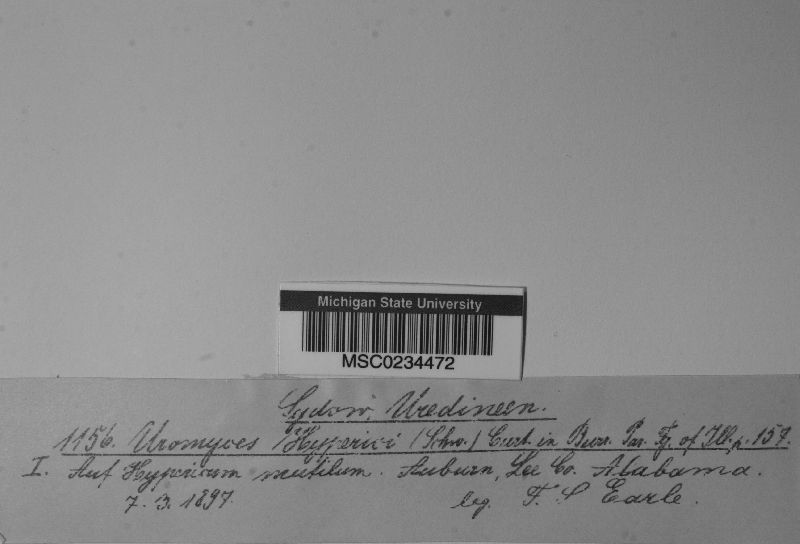 Michigan State University
MSC0234472
Sydow, Uredineen.
1156. Uromyces Hyperici (Schw.) Curt. in Burr. Par. Fg. of Ill. p. 157.
I. Auf Hypericum mutilum. Auburn, Lee Co. Alabama.
7. 3. 1897. leg. F. S. Earle.